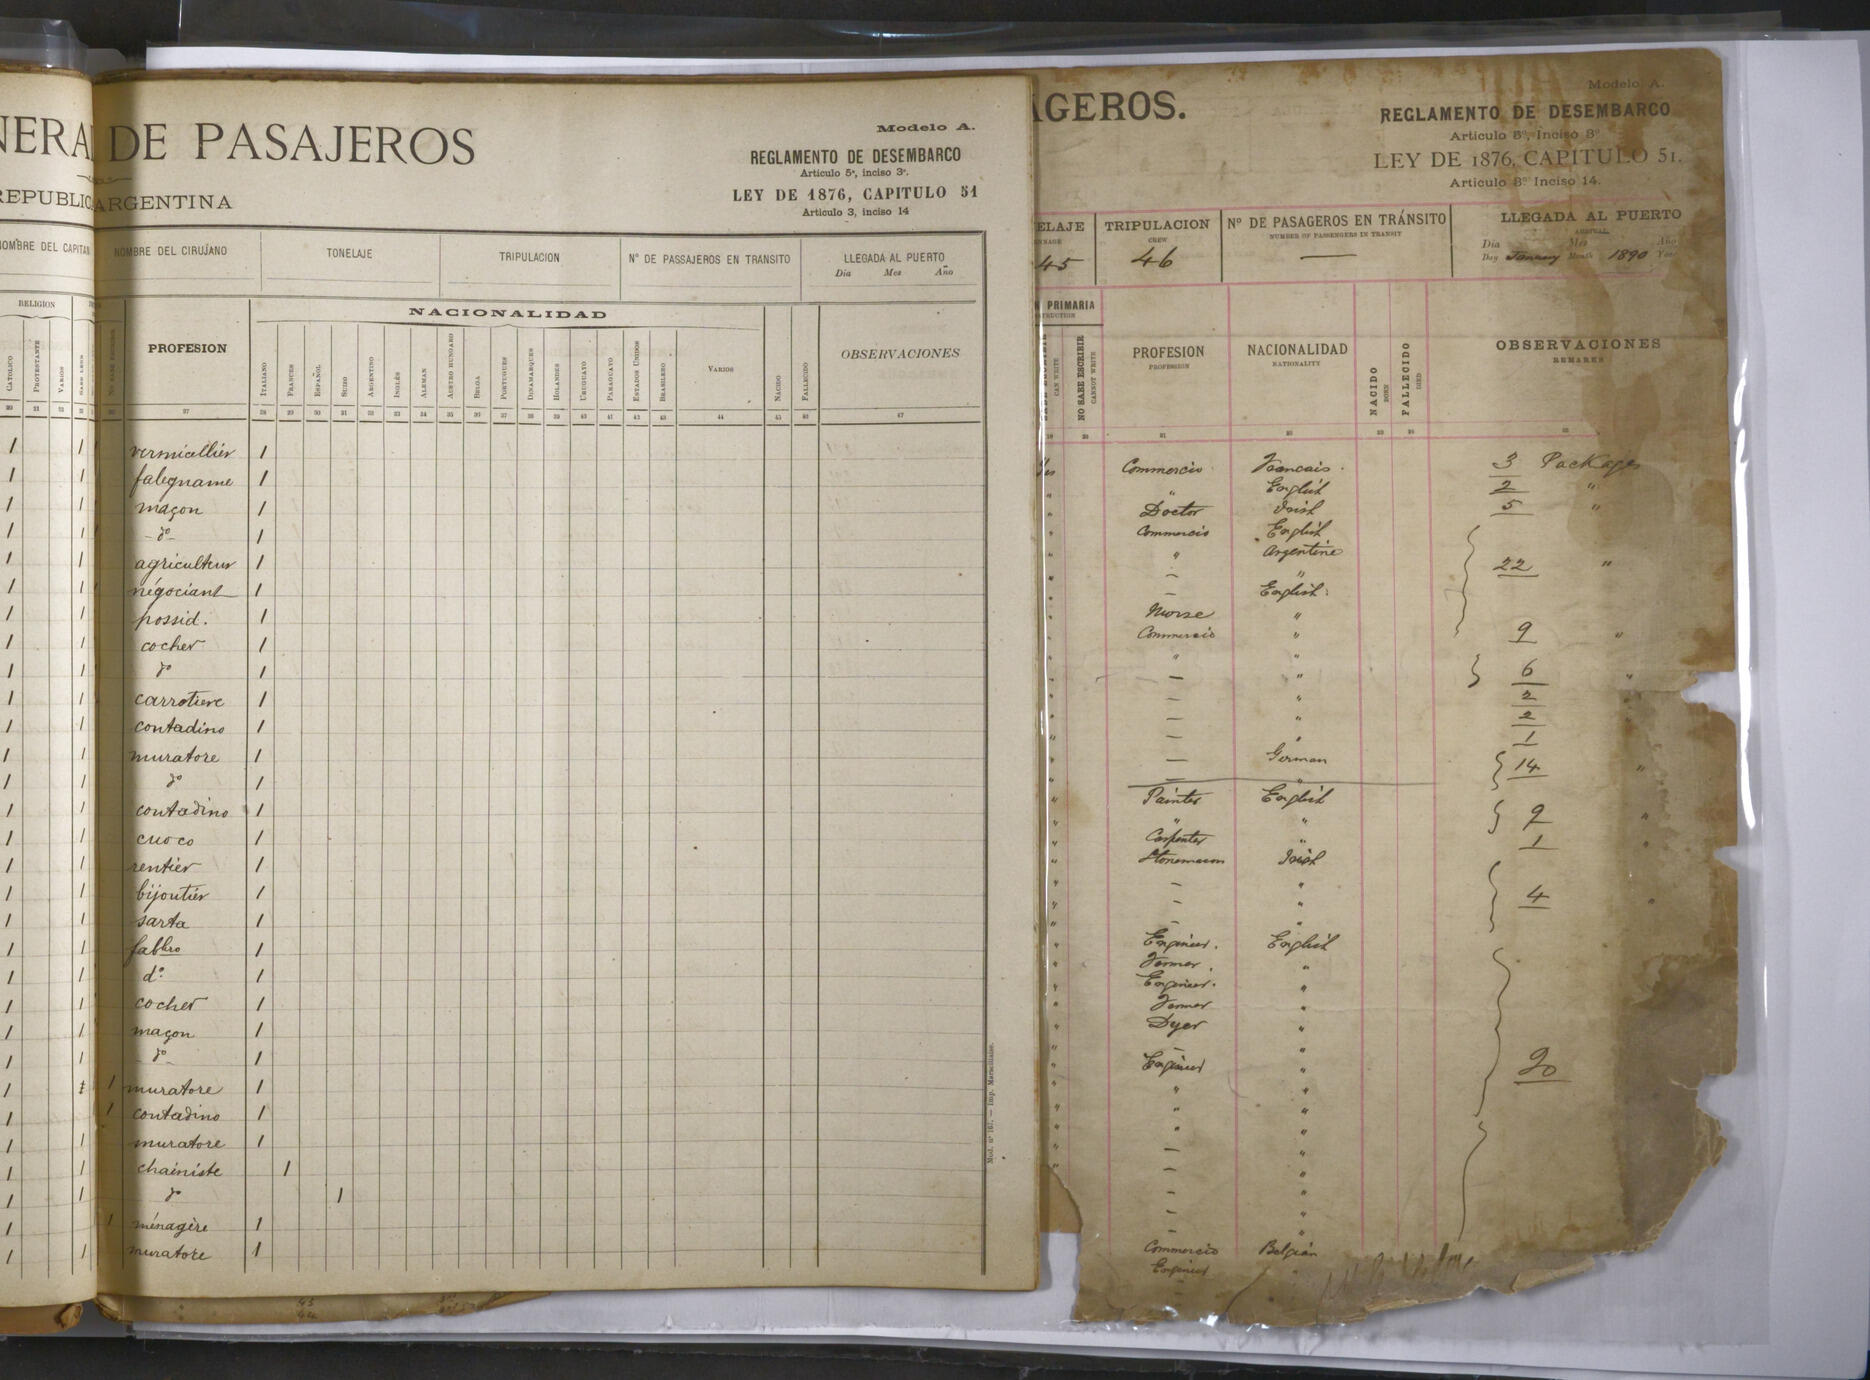 NERA DE PASAJEROS
REPUBLIC ARGENTINA
Modelo A.
REGLAMENTO DE DESEMBARCO
Articulo 5º, inciso 3º.
LEY DE 1876, CAPITULO 51
Articulo 3, inciso 14
NOMBRE DEL CAPITAN
NOMBRE DEL CIRUJANO
TONELAJE
TRIPULACION
Nº DE PASSAJEROS EN TRANSITO
LLEGADA AL PUERTO
Dia Mes Año
RELIGION
CATOLICO
PROTESTANTE
VARIOS
PROFESION
NACIONALIDAD
ITALIANO
FRANCES
ESPAÑOL
SUIZO
ARGENTINO
INGLÉS
ALEMAN
AUSTRO HUNGARO
BELGA
PORTUGUES
DINAMARQUES
HOLANDES
URUGUAYO
PARAGUAYO
ESTADOS UNIDOS
BRASILERO
VARIOS
NACIDO
FALLECIDO
OBSERVACIONES
20 21 22 27 28 29 30 31 32 33 34 35 36 37 38 39 40 41 42 43 44 45 46 47
1 1 vermicellier 1
1 1 falegname 1
1 1 maçon 1
1 1 - dº - 1
1 1 agriculteur 1
1 1 négociant 1
1 1 possid. 1
1 1 cocher 1
1 1 dº 1
1 1 carrotiere 1
1 1 contadino 1
1 1 muratore 1
1 1 dº 1
1 1 contadino 1
1 1 cuoco 1
1 1 rentier 1
1 1 bijoutier 1
1 1 sarta 1
1 1 fabbro 1
1 1 dº 1
1 1 cocher 1
1 1 maçon 1
1 1 - dº - 1
1 1 muratore 1
1 1 contadino 1
1 1 muratore 1
1 1 chainiste 1
1 1 dº 1
1 1 ménagère 1
1 1 muratore 1
Mod. nº 167. — Imp. Marseillaise.
AGEROS.
Modelo A.
REGLAMENTO DE DESEMBARCO
Articulo 5º, Inciso 3º
LEY DE 1876, CAPITULO 51.
Articulo 3º Inciso 14.
ELAJE
NNAGE
45
TRIPULACION
CREW
46
Nº DE PASAGEROS EN TRÁNSITO
NUMBER OF PASSENGERS IN TRANSIT
—
LLEGADA AL PUERTO
ARRIVAL
Dia Mes Año
Day January Month 1890 Year
N PRIMARIA
STRUCTION
SABE ESCRIBIR
CAN WRITE
NO SABE ESCRIBIR
CANNOT WRITE
PROFESION
PROFESSION
NACIONALIDAD
NATIONALITY
NACIDO
BORN
FALLECIDO
DIED
OBSERVACIONES
REMARKS
Yes Commercio Francais. 3 Packages
" " English 2 "
" Doctor Irish 5 "
" Commercio English
" " Argentine
" — " 22 "
" — English.
" Nurse "
" Commercio " 9 "
" " "
" — " 6 "
" — " 2 "
" — " 2
" — " 1
" — German 14 "
" — "
" Painter English
" " " 9 "
" Carpenter " 1 "
" Stonemason Irish
" — "
" — " 4 "
" — "
" Engineer. English
" Farmer. "
" Engineer. "
" Farmer "
" Dyer "
" — "
" Engineer " 20
" " "
" " "
" " "
" — "
" — "
— "
— "
— "
Commercio Belgian
Engineer "